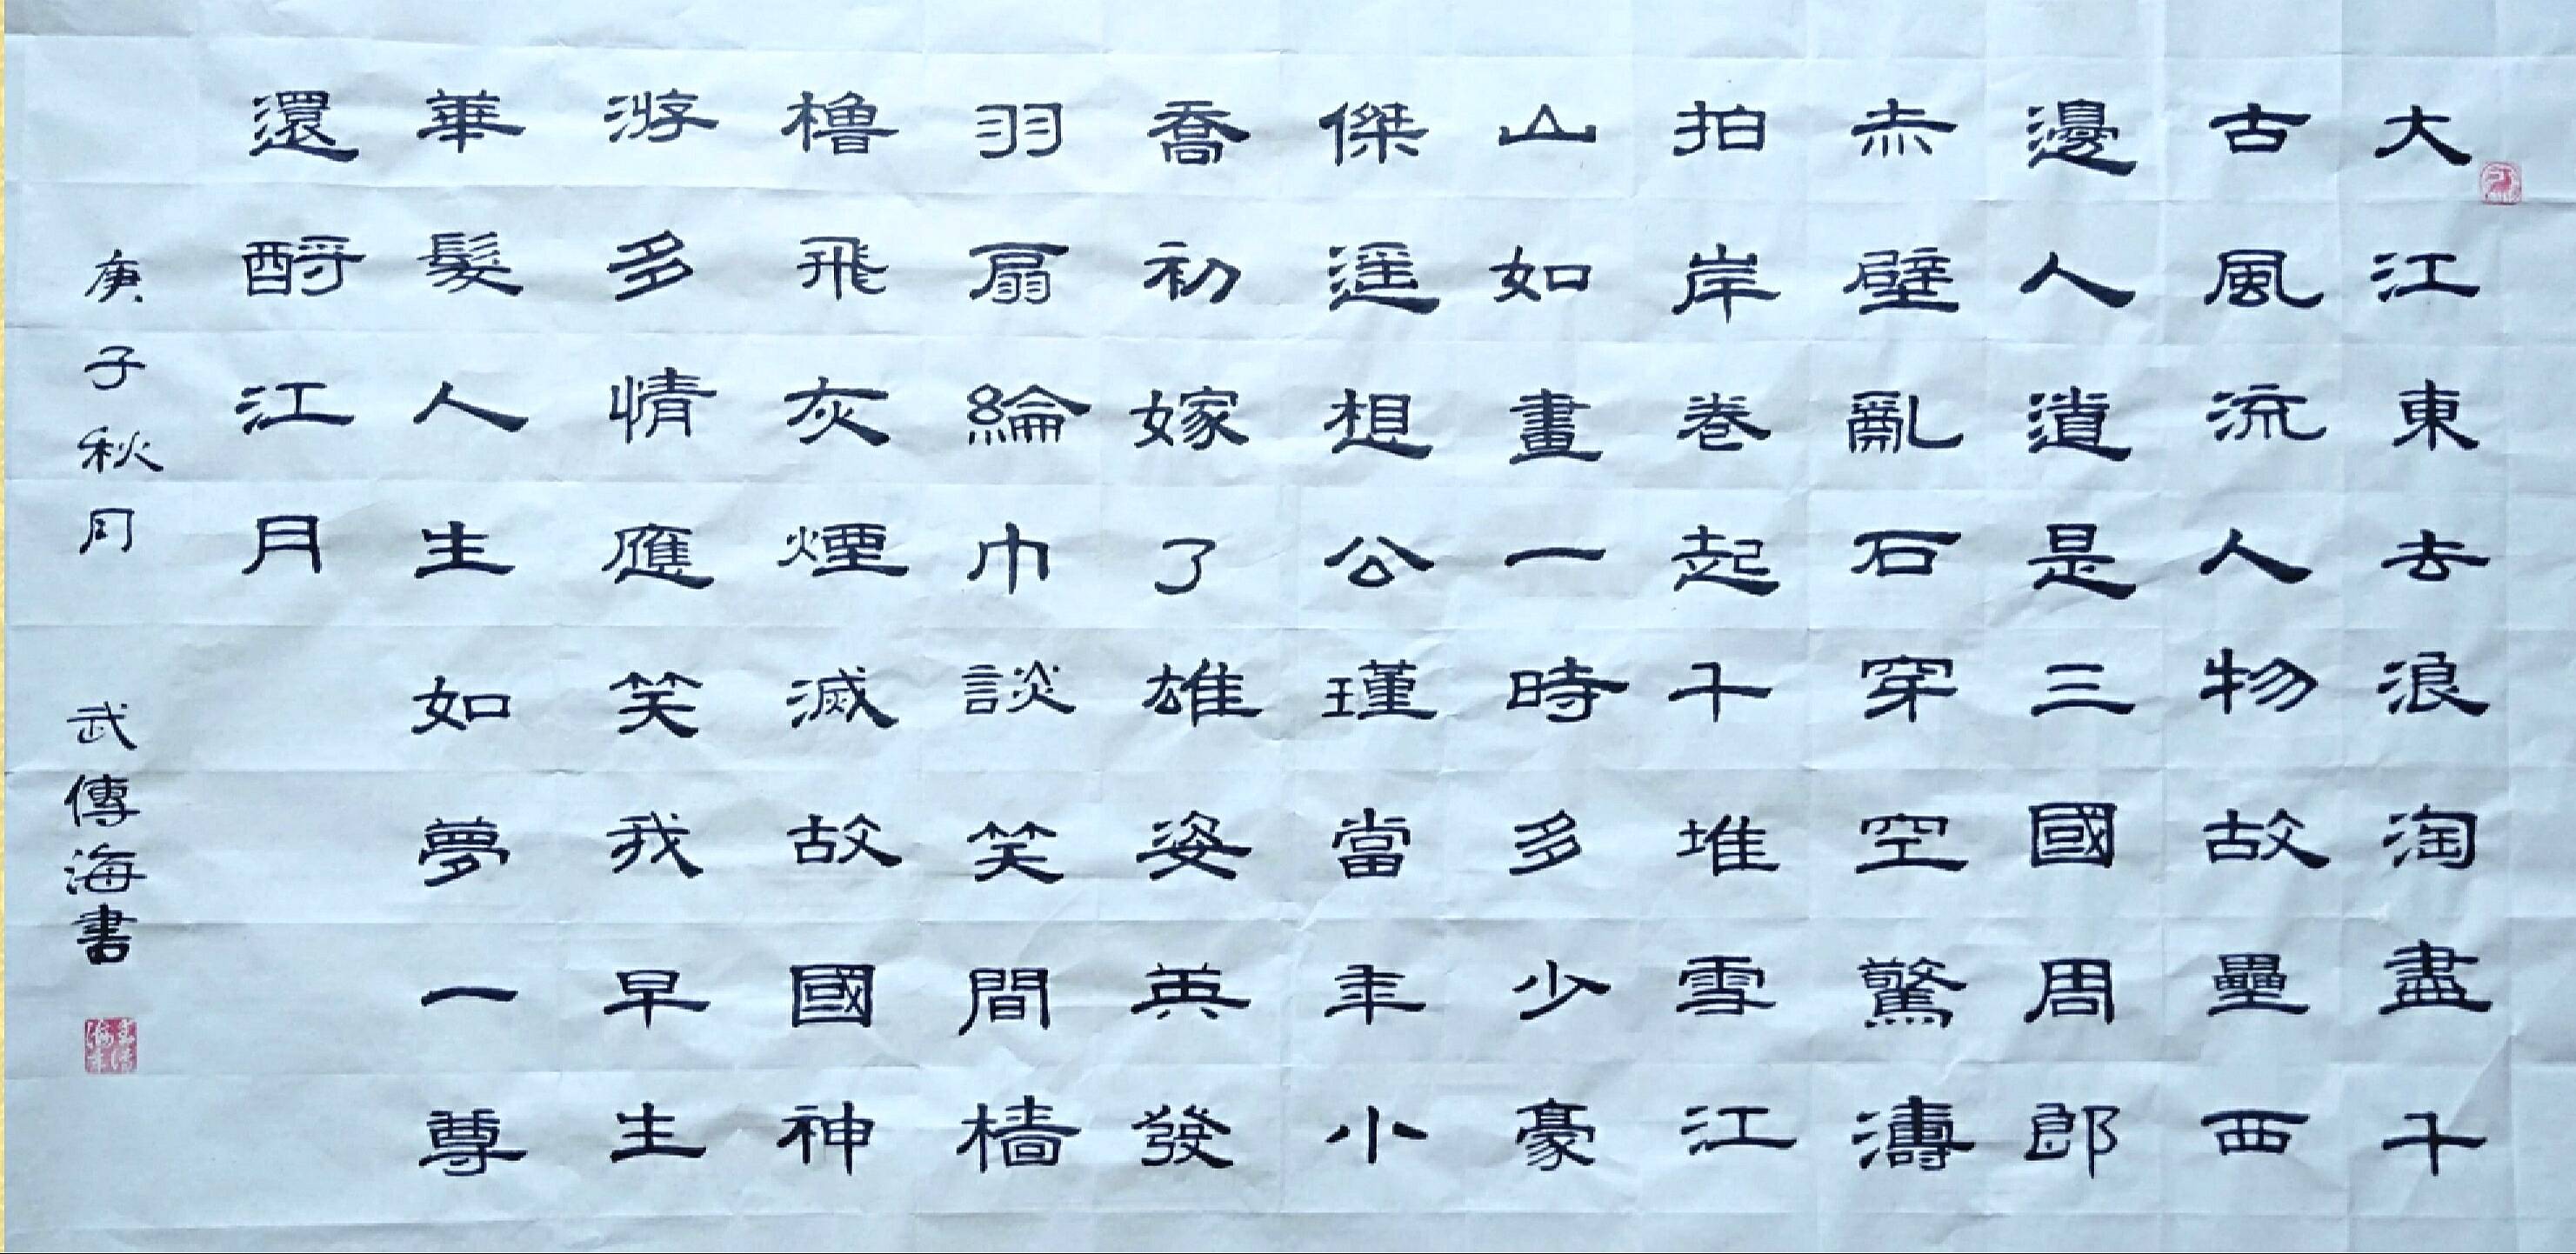 大江東去浪淘盡千
古風流人物故壘西
邊人道是三國周郎
赤壁亂石穿空驚濤
拍岸卷起千堆雪江
山如畫一時多少豪
傑遥想公瑾當年小
喬初嫁了雄姿英發
羽扇綸巾談笑間檣
櫓飛灰煙滅故國神
游多情應笑我早生
華髮人生如夢一尊
還酹江月
庚子秋月 武傳海書